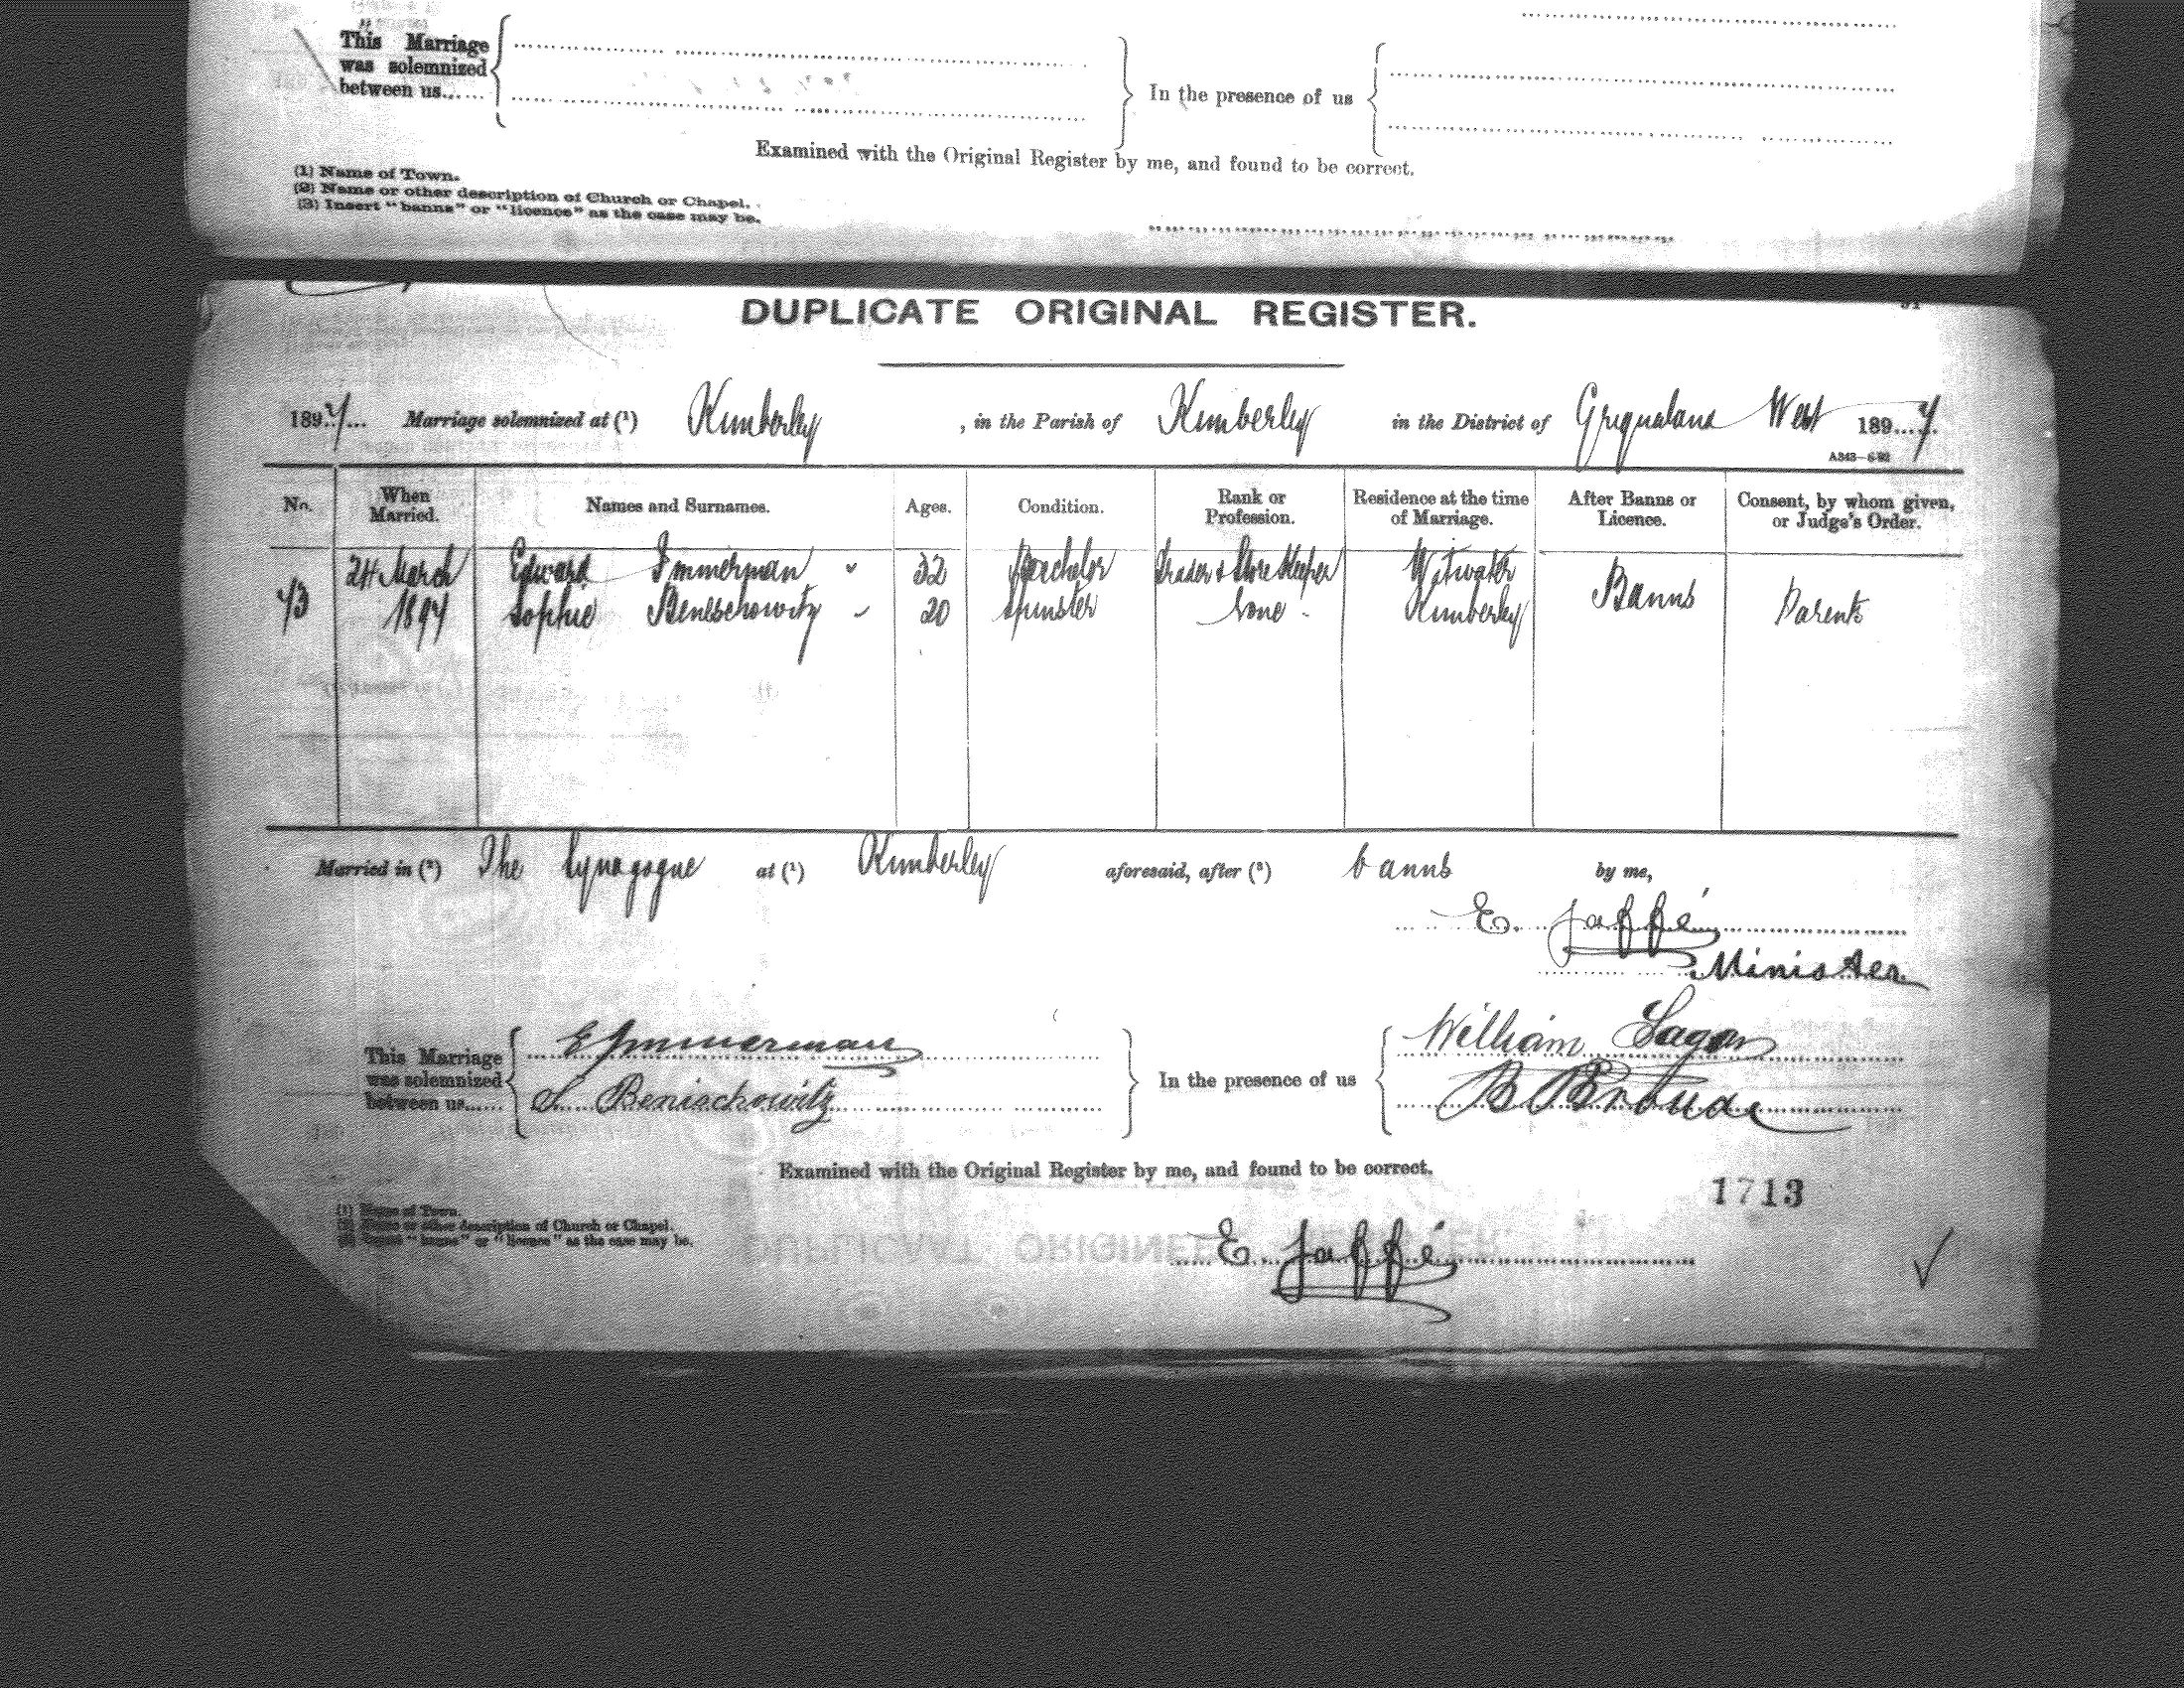 This Marriage
was solemnized
between us......
In the presence of us
Examined with the Original Register by me, and found to be correct.
(1) Name of Town.
(2) Name or other description of Church or Chapel.
(3) Insert "banns" or "licence" as the case may be.
DUPLICATE ORIGINAL REGISTER.
1897... Marriage solemnized at (1) Kimberley, in the Parish of Kimberley in the District of Griqualand West 189...7.
No. When Married. Names and Surnames. Ages. Condition. Rank or Profession. Residence at the time of Marriage. After Banns or Licence. Consent, by whom given, or Judge's Order.
43 24 March Edward Immerman 32 Bachelor Trader & Store Keeper Witwater Banns Parents
1897 Sophie Benischowitz 20 Spinster None - Kimberley
Married in (2) The Synagogue at (1) Kimberley aforesaid, after (3) banns by me,
E. Jaffé
Minister
This Marriage
was solemnized
between us......
E Immerman
S. Benischowitz
In the presence of us
William Sagar
B Braude
Examined with the Original Register by me, and found to be correct.
1713
(1) Name of Town.
(2) Name or other description of Church or Chapel.
(3) Insert "banns" or "licence" as the case may be.
E. Jaffé